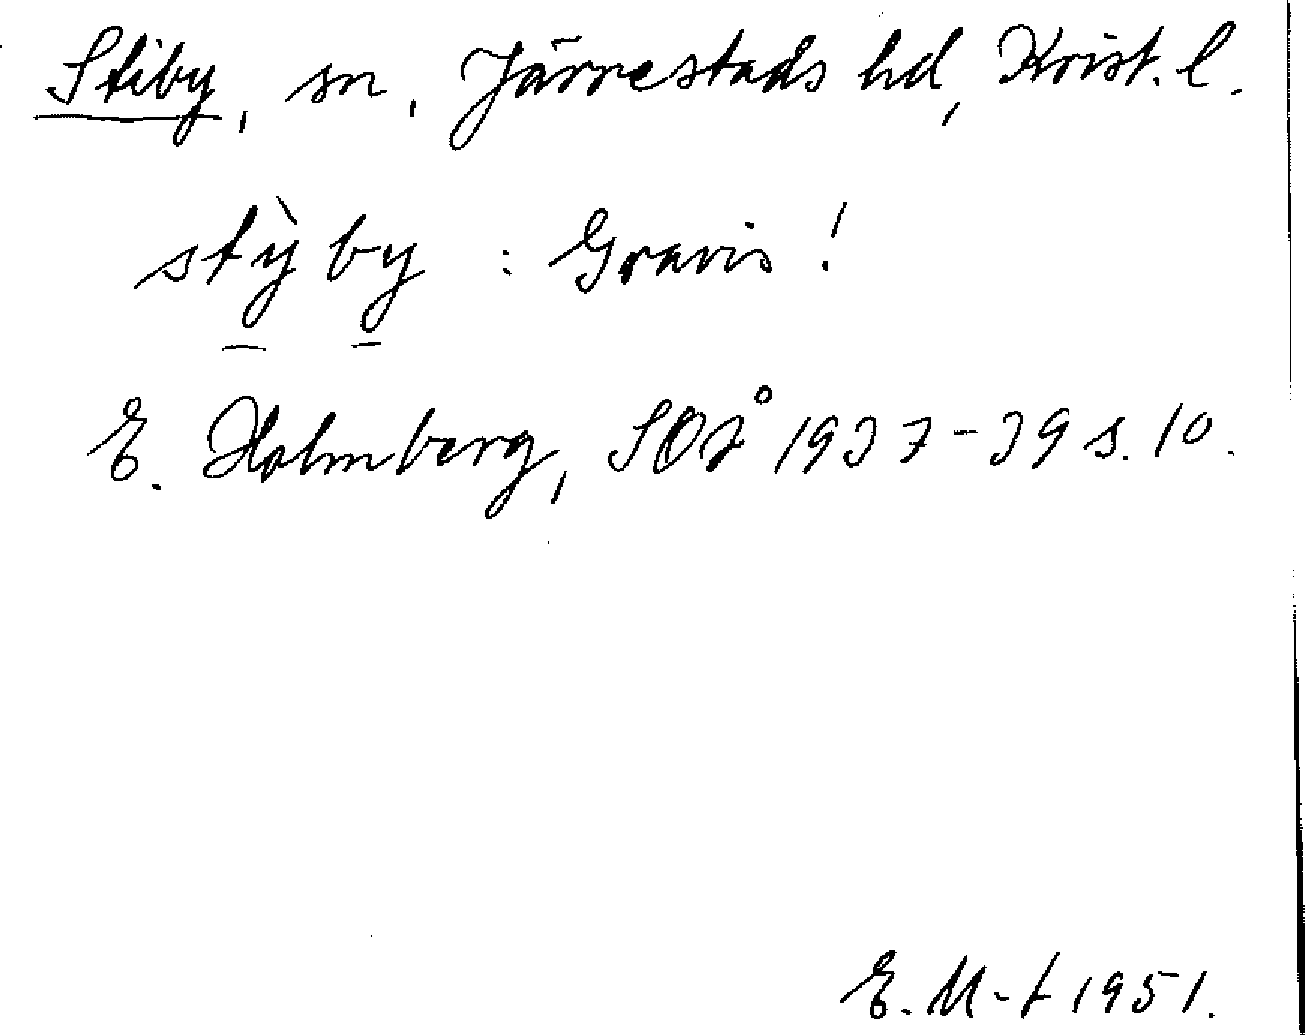 Stiby, sn, Järrestads hd, Krist. l.
stỳby : Gravis!
E. Holmberg, SOÅ 1937-39 s. 10.
E. M-t 1951.